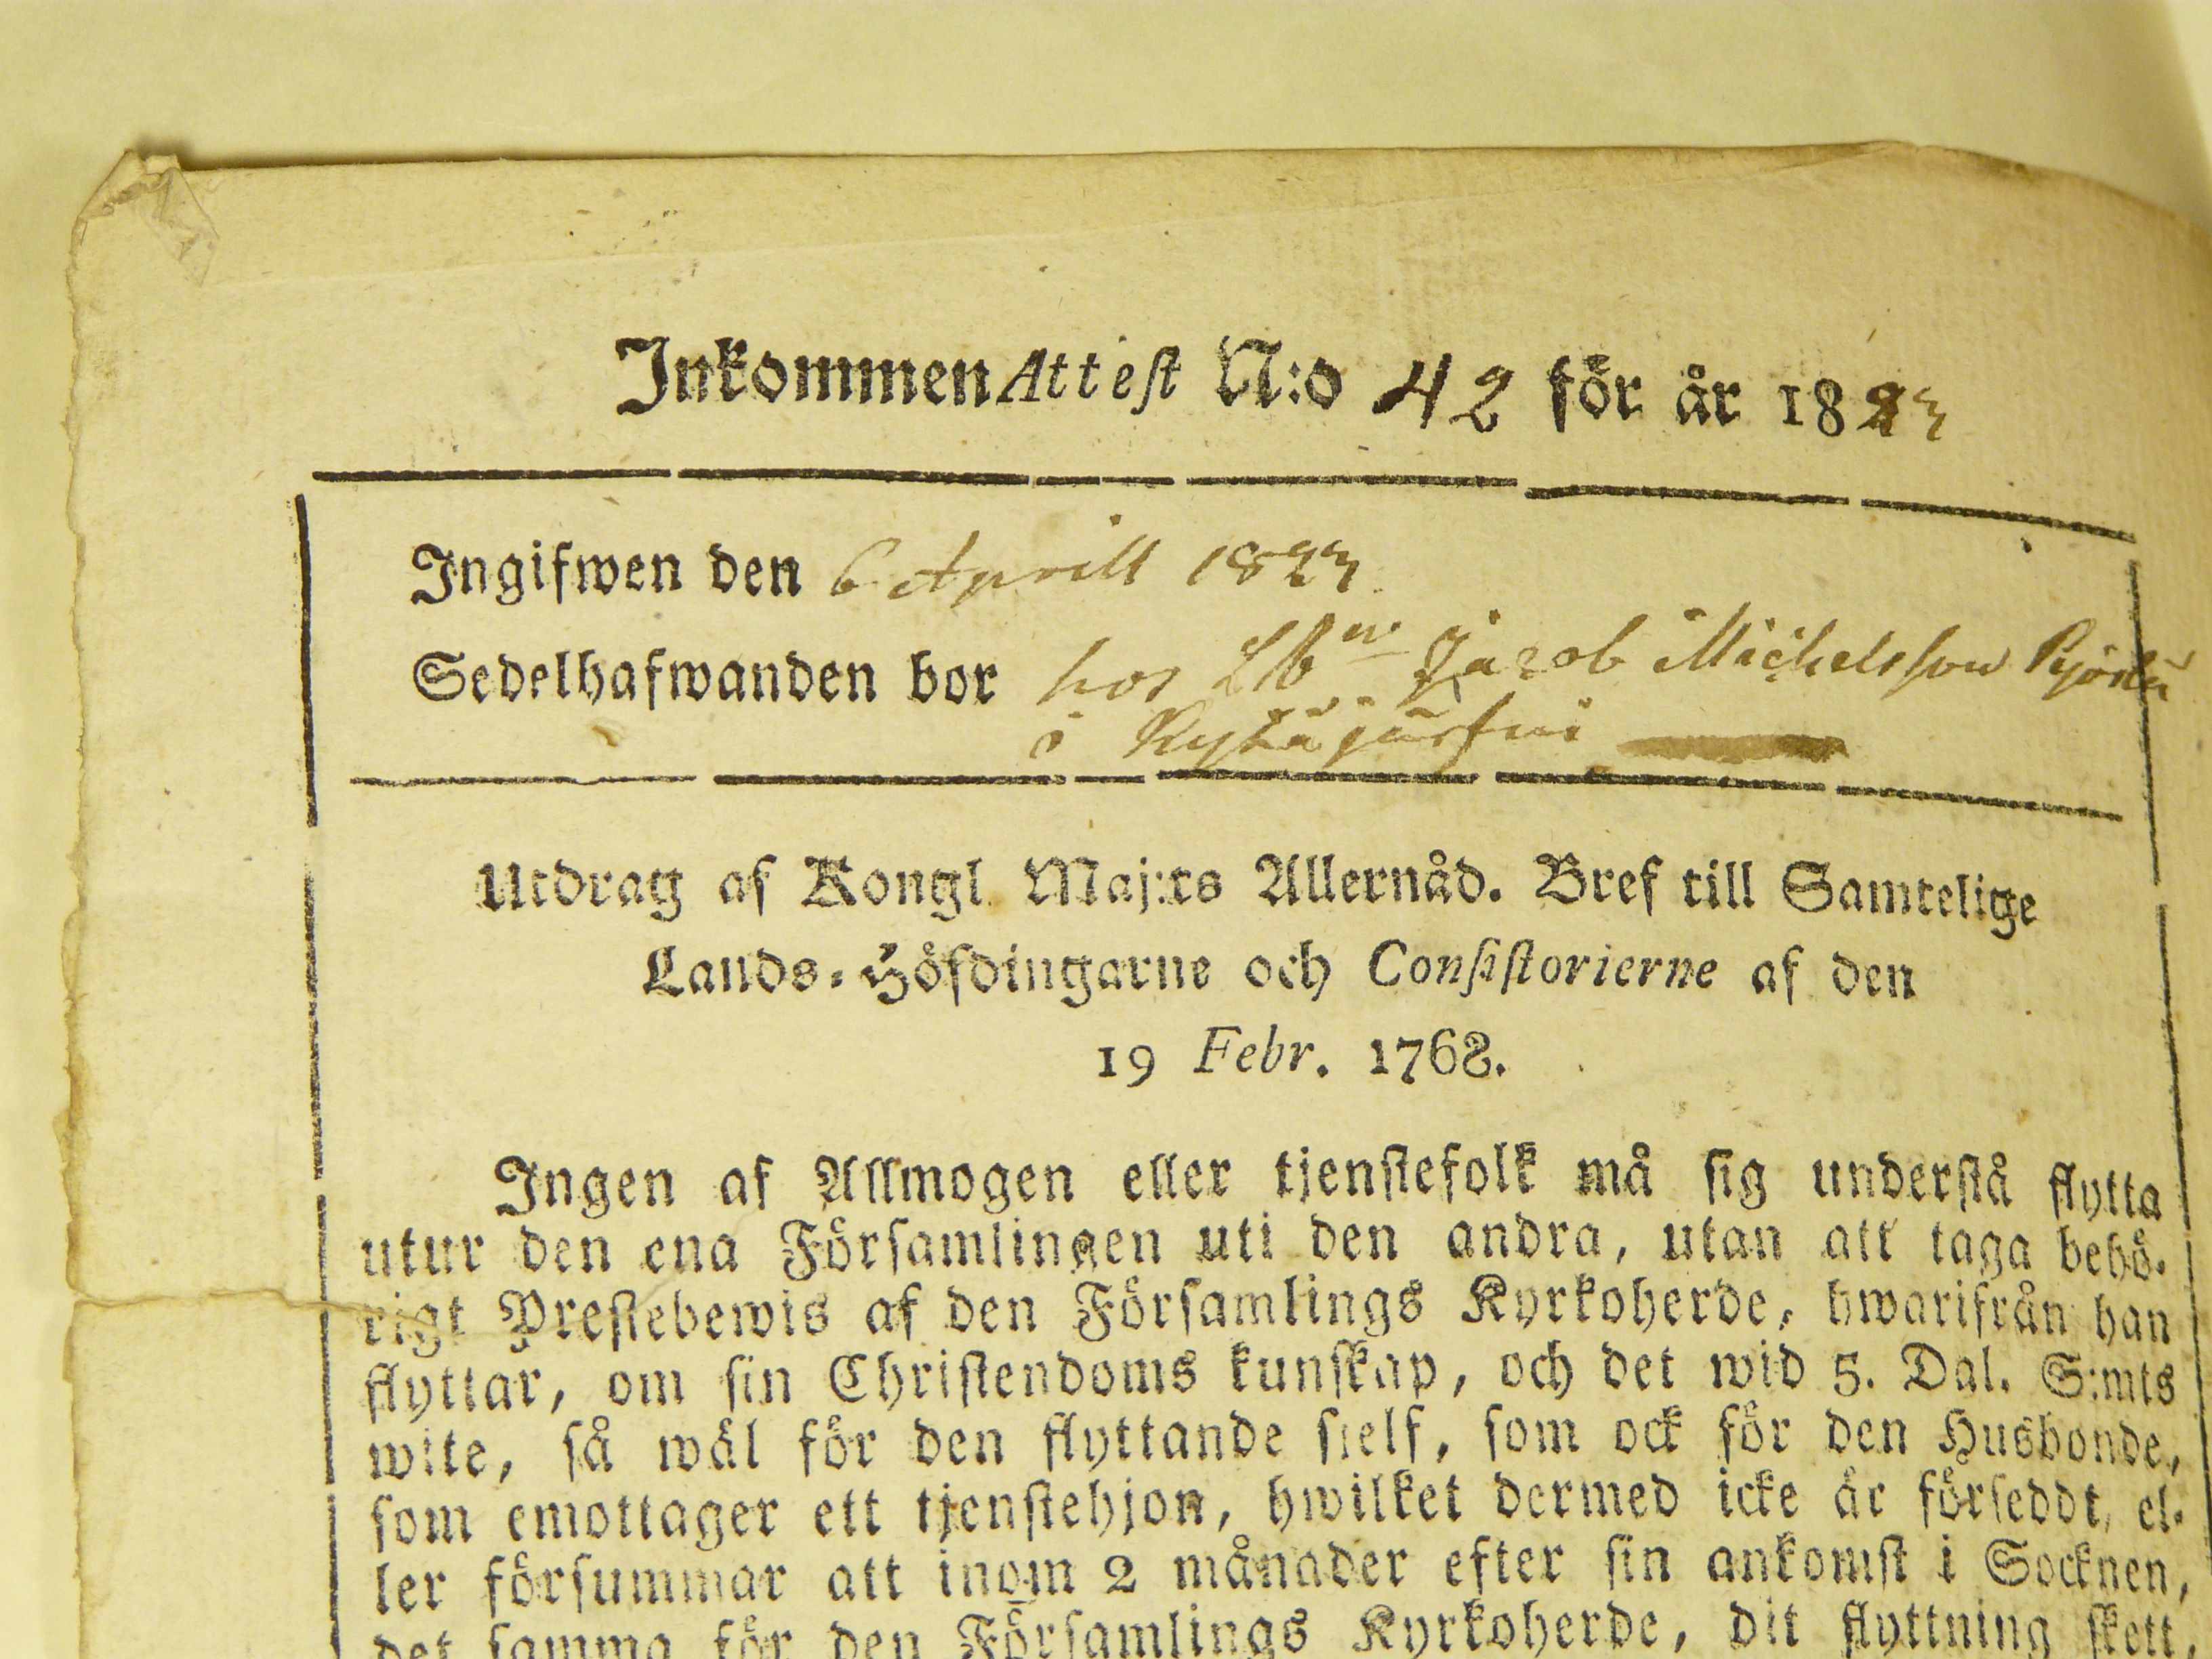 Inkommen Attest N:o 42 för år 1823
Ingifwen den 6 Aprill 1823
Sedelhafwanden bor hos Lbn. Jacob Michelsson
i Kyläjärfwi
Utdrag af Kongl. Maj:ts Allernåd. Bref till Samtelige
Lands-Höfdingarne och Consistorierne af den
19 Febr. 1768.
Ingen af Allmogen eller tjenstefolk må sig understå flytta
utur den ena Församlingen uti den andra, utan att taga behö-
rigt Prestebewis af den Församlings Kyrkoherde, hwarifrån han
flyttar, om sin Christendoms kunskap, och det wid 5. Dal. S:mts
wite, så wäl för den flyttande sjelf, som ock för den Husbonde,
som emottager ett tjenstehjon, hwilket dermed icke är förseddt, el-
ler försummar att inom 2 månader efter sin ankomst i Socknen,
det samma för den Församlings Kyrkoherde, dit flyttning skett,